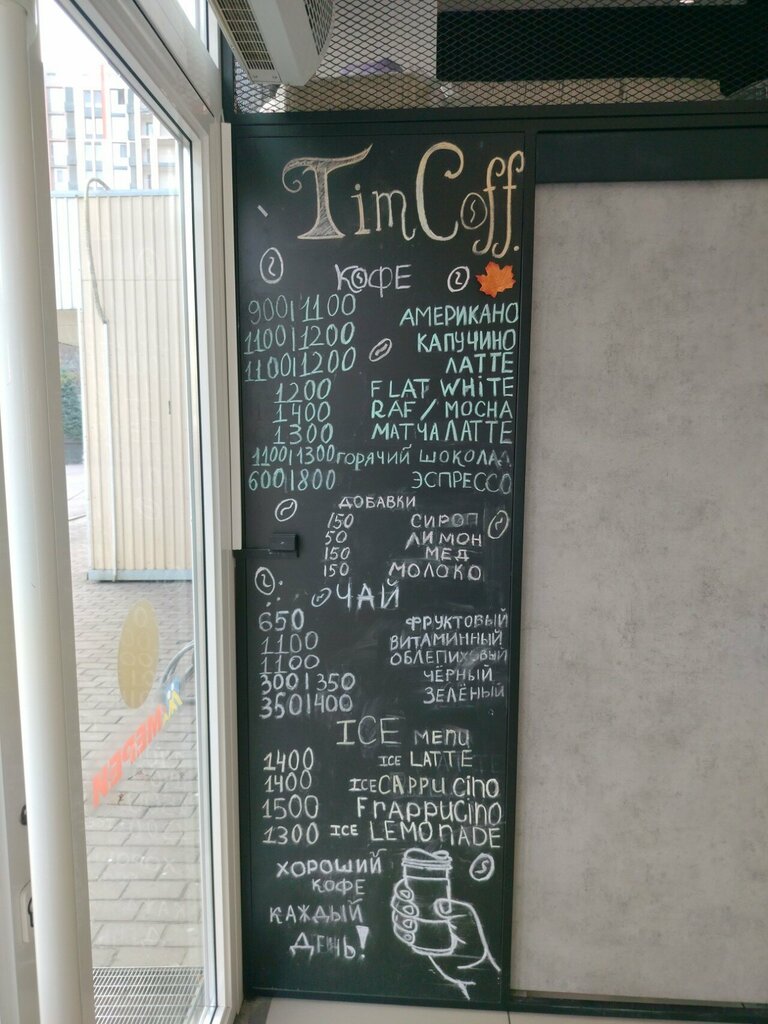 TimCoff.
КОФЕ
900|1100 АМЕРИКАНО
1100|1200 КАПУЧИНО
1100|1200 ЛАТТЕ
1200 FLAT WHITE
1400 RAF / MOCHA
1300 МАТЧА ЛАТТЕ
1100|1300 ГОРЯЧИЙ ШОКОЛАД
600|800 ЭСПРЕССО
ДОБАВКИ
150 СИРОП
50 ЛИМОН
150 МЕД
150 МОЛОКО
ЧАЙ
650 ФРУКТОВЫЙ
1100 ВИТАМИННЫЙ
1100 ОБЛЕПИХОВЫЙ
300|350 ЧЁРНЫЙ
350|400 ЗЕЛЁНЫЙ
ICE MENU
1400 ICE LATTE
1400 ICE CAPPUCINO
1500 FRAPPUCINO
1300 ICE LEMONADE
ХОРОШИЙ
КОФЕ
КАЖДЫЙ
ДЕНЬ!